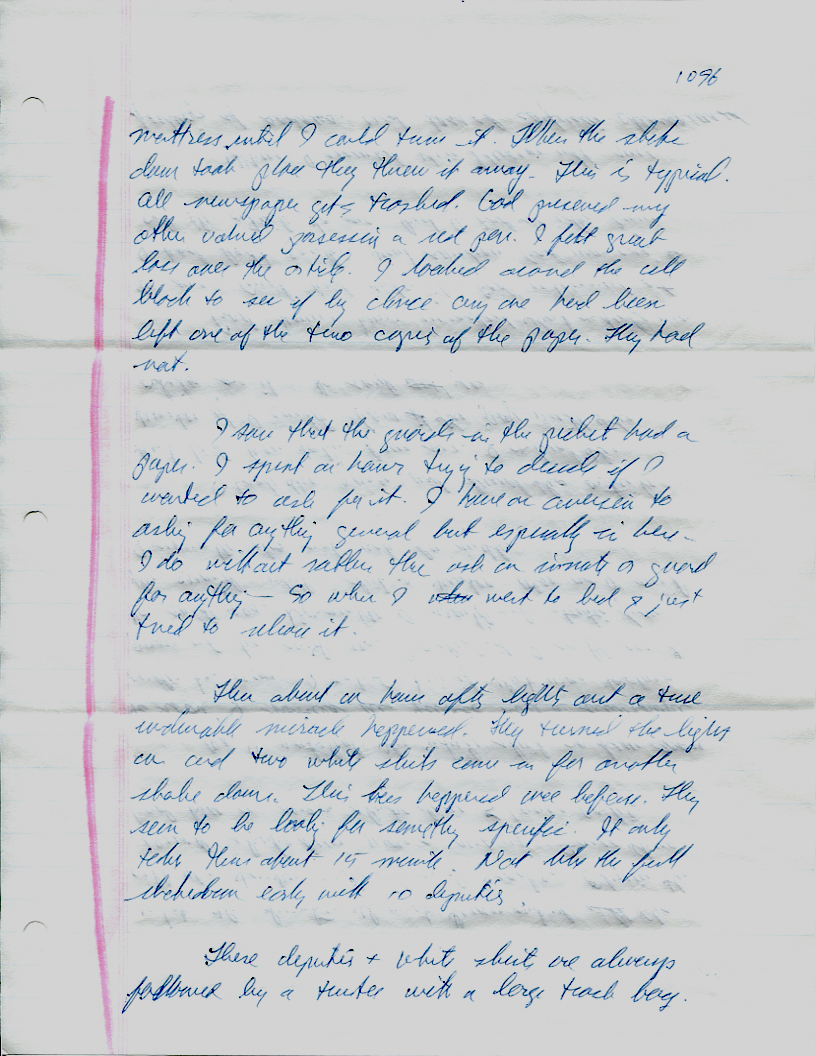 1096
mattress until I could turn it. When the shake
down took place they threw it away. This is typical.
All newspaper gets trashed. God preserved my
other valued possession a red pen. I felt great
loss over the article. I looked around the cell
block to see if by chance any one had been
left one of the two copies of the paper. They had
not.
I saw that the guards in the picket had a
paper. I spent an hour trying to decide if I
wanted to ask for it. I have an aversion to
asking for anything general but especially in here.
I do without rather the ask an inmate or guard
for anything — So when I went to bed I just
tried to release it.
Then about an hour after lights out a true
undeniable miracle happened. They turned the lights
on and two white shirts came in for another
shake down. This has happened once before. They
seem to be looking for something specific. It only
takes them about 15 minute. Not like the full
shakedown early with 10 deputies.
These deputies + white shirts are always
followed by a trustee with a large trash bag.